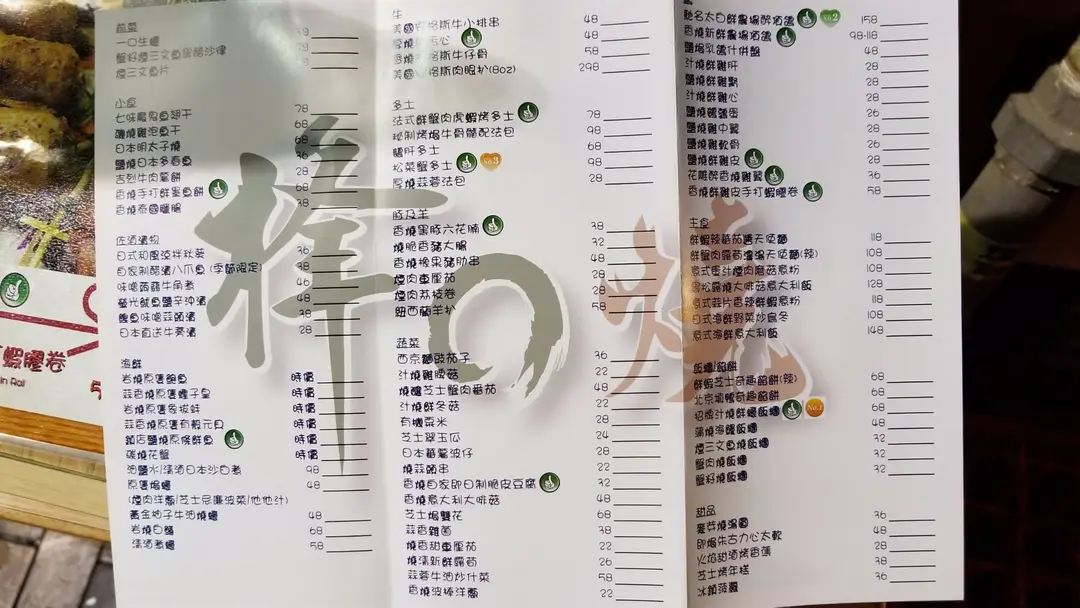 前菜
一口生蠔 38
蟹籽煙三文魚蛋醋沙律
煙三文魚片
小食 78
七味魔鬼魚翅干 68
磯燒雞泡魚干 68
日本明太子燒 36
鹽燒日本多春魚 28
吉列牛肉薯餅 68
香燒手打鮮墨魚餅 38
香燒泰國臘腸
佐酒漬物
日式和風涼拌秋葵 36
自家制醋漬八爪魚(季節限定)
味噌蒟蒻牛角煮 46
螢光魷魚鹽辛沖漬 48
鰹魚味噌蒜頭漬 38
日本直送牛蒡漬 28
海鮮
岩燒原隻鮑魚 時價
蒜香燒原隻蟶子皇 時價
岩燒原隻象拔蚌 時價
蒜香燒原隻有殼元貝 時價
鎮店鹽燒原條鮮魚 時價
碳燒花蟹 時價
油鹽水/清酒日本沙白煮 98
原隻焗蠔 48
(煙肉洋蔥/芝士忌廉波菜/他他汁)
黃金柚子牛油燒蠔 48
岩燒白鱔 68
清酒煮蠔 58
牛
美國安格斯牛小排串 48
48
安格斯牛仔骨 58
美國安格斯肉眼扒(8oz) 298
多士
法式鮮蟹肉虎蝦烤多士 78
秘制烤焗牛骨髓配法包 98
鵝肝多士 68
松菜蟹多士 No.3 98
厚燒蒜蓉法包 28
豚及羊
香燒黑豚六花腩 38
燒脆香豬大腸 32
香燒橡果豬肋串 48
煙肉車厘茄 28
煙肉荔枝卷 28
紐西蘭羊扒 58
蔬菜
西京麵豉茄子 36
汁燒雞腰菇 22
燒釀芝士蟹肉番茄 48
汁燒鮮冬菇 22
有機粟米 28
芝士翠玉瓜 24
日本蕃薯波仔 28
燒蒜頭串 22
香燒自家即日制脆皮豆腐 32
香燒意大利大啡菇 48
芝士焗雙花 68
蒜香雜菌 38
燒香甜車厘茄 22
燒清新鮮露筍 26
蒜蓉牛油炒什菜 58
香燒波棒洋蔥 22
馳名太白鮮農場醉酒鴿 No.2 158
香燒新鮮農場酒鴿 98-118
鹽焗乳鴿什併盤 48
汁燒鮮雞肝 28
鹽燒鮮雞腎 28
汁燒鮮雞心 28
鹽燒鵪鶉蛋 26
鹽燒雞中翼 28
鹽燒雞軟骨 28
鹽燒鮮雞皮 28
花雕醉香燒雞翼 36
香燒鮮雞皮手打蝦膠卷 58
主食
鮮蝦辣蕃茄醬天使麵 118
鮮蟹肉露筍濃湯天使麵(辣) 108
意式蛋汁煙肉磨菇意粉 108
黑松露燒大啡菇意大利飯 128
意式蒜片香辣鮮蝦意粉 118
日式海鮮野菜炒烏冬 108
意式海鮮意大利飯 148
飯糰/餡餅
鮮蝦芝士奇趣餡餅(辣) 68
北京填鴨奇趣餡餅 68
招牌汁燒鮮鰻飯糰 No.1 68
蒲燒海鰻飯糰 48
煙三文魚燒飯糰 32
蟹肉燒飯糰 32
蟹籽燒飯糰 32
甜品
麥芽燒湯圓 36
即焗朱古力心太軟 48
火焰甜酒烤香蕉 28
芝士烤年糕 38
冰鎮菠蘿 36
捧の燒
蝦膠卷
in Roll
5